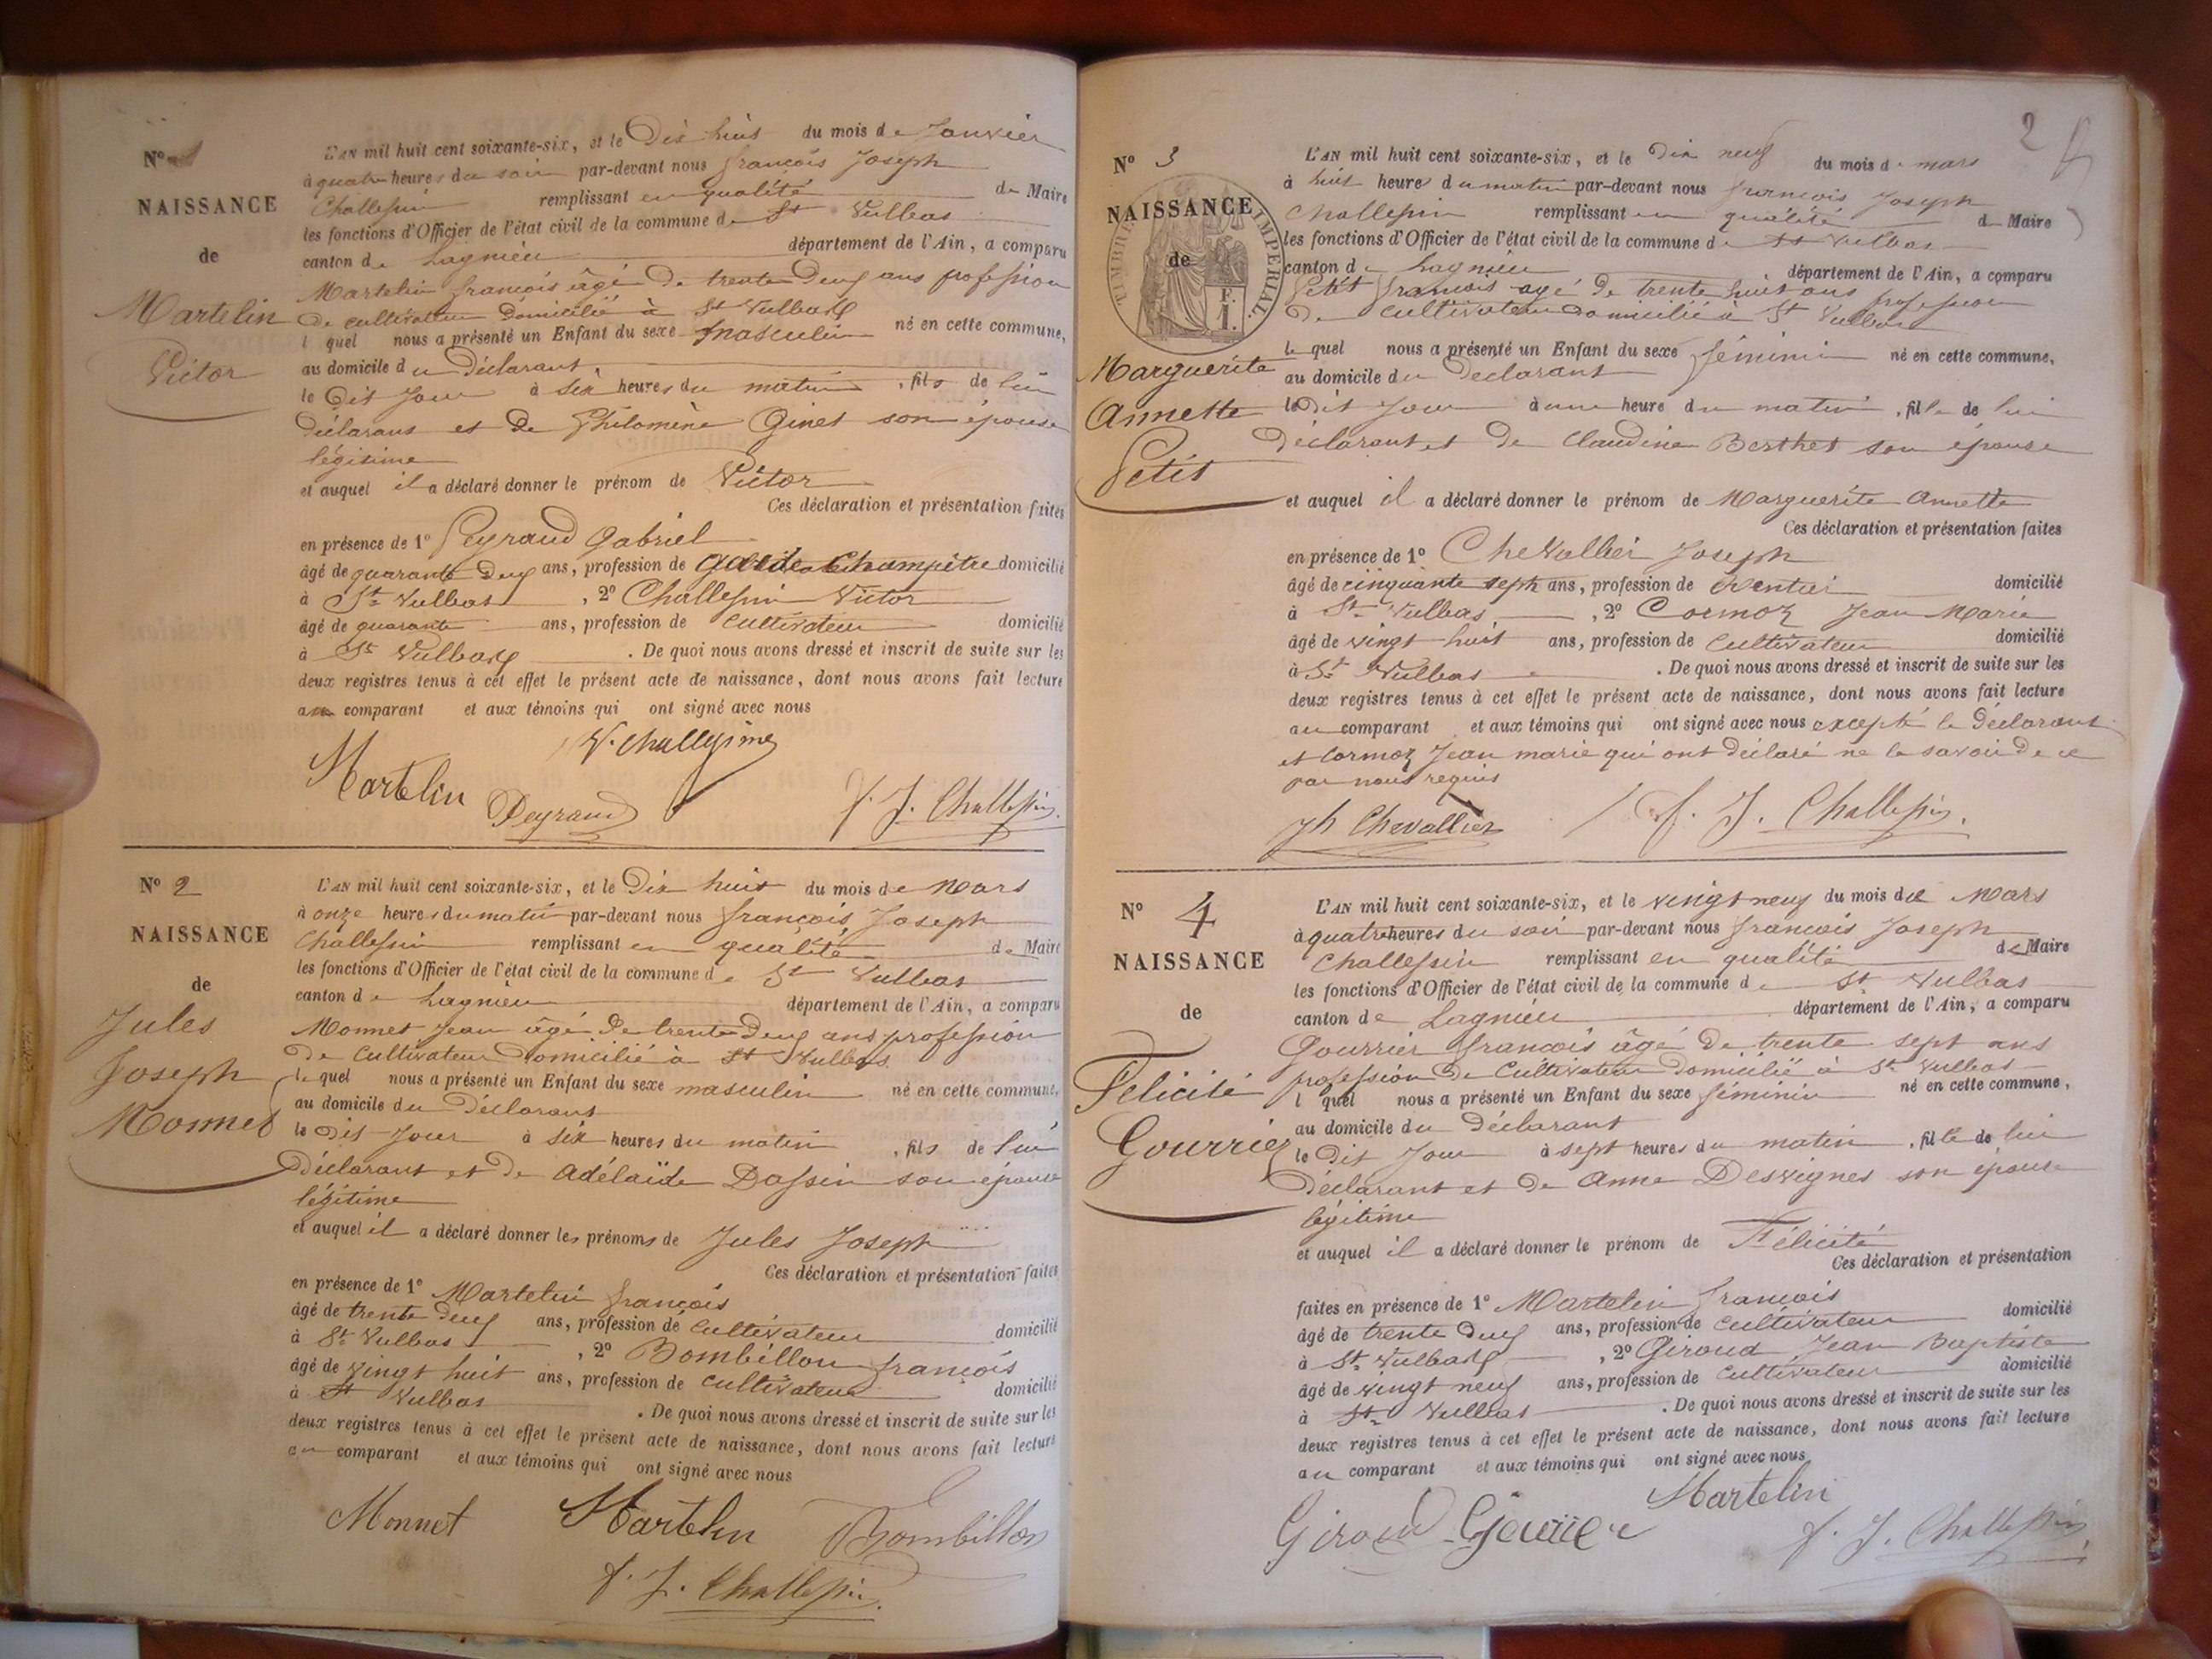 N° 1
NAISSANCE
de
Martelin
Victor
L'AN mil huit cent soixante-six, et le Dix huit du mois de Janvier
à quatre heures du soir par-devant nous françois Joseph
Challessin remplissant en qualité de Maire
les fonctions d'Officier de l'état civil de la commune de St Vulbas
canton de Lagnieu département de l'Ain, a comparu
Martelin françois âgé de trente deux ans profession
de cultivateur domicilié à St Vulbas
l quel nous a présenté un Enfant du sexe masculin né en cette commune,
au domicile du Déclarant
le dit Jour à six heures du matin, fils de lui
déclarant et de Philomène Ginet son épouse
légitime
et auquel il a déclaré donner le prénom de Victor
Ces déclaration et présentation faites
en présence de 1° Peyraud Gabriel
âgé de quarante deux ans, profession de garde Champêtre domicilié
à St Vulbas, 2° Challessin Victor
âgé de quarante ans, profession de cultivateur domicilié
à St Vulbas. De quoi nous avons dressé et inscrit de suite sur les
deux registres tenus à cet effet le présent acte de naissance, dont nous avons fait lecture
au comparant et aux témoins qui ont signé avec nous
V. Challesin
Martelin Peyraud f. J. Challessin
N° 2
NAISSANCE
de
Jules
Joseph
Monnet
L'AN mil huit cent soixante-six, et le Dix huit du mois de Mars
à onze heures du matin par-devant nous françois Joseph
Challessin remplissant en qualité de Maire
les fonctions d'Officier de l'état civil de la commune de St Vulbas
canton de Lagnieu département de l'Ain, a comparu
Monnet Jean âgé de trente deux ans profession
de cultivateur domicilié à St Vulbas
le quel nous a présenté un Enfant du sexe masculin né en cette commune,
au domicile du Déclarant
le dit Jour à six heures du matin, fils de lui
déclarant et de Adélaïde Dassin son épouse
légitime
et auquel il a déclaré donner les prénoms de Jules Joseph
Ces déclaration et présentation faites
en présence de 1° Martelin françois
âgé de trente deux ans, profession de cultivateur domicilié
à St Vulbas, 2° Bombillon françois
âgé de vingt huit ans, profession de cultivateur domicilié
à St Vulbas. De quoi nous avons dressé et inscrit de suite sur les
deux registres tenus à cet effet le présent acte de naissance, dont nous avons fait lecture
au comparant et aux témoins qui ont signé avec nous
Monnet Martelin Bombillon
f. J. Challessin
2
N° 3
NAISSANCE
de
TIMBRE IMPERIAL
F.
1.
Marguerite
Annette
Petit
L'AN mil huit cent soixante-six, et le Dix neuf du mois de mars
à huit heure du matin par-devant nous françois Joseph
Challessin remplissant en qualité de Maire
les fonctions d'Officier de l'état civil de la commune de St Vulbas
canton de Lagnieu département de l'Ain, a comparu
Petit françois agé de trente huit ans profession
de cultivateur domicilié à St Vulbas
le quel nous a présenté un Enfant du sexe féminin né en cette commune,
au domicile du Déclarant
le dit Jour à une heure du matin, fille de lui
déclarant et de Claudine Berthet son épouse
et auquel il a déclaré donner le prénom de Marguerite Annette
Ces déclaration et présentation faites
en présence de 1° Chevallier Joseph
âgé de cinquante sept ans, profession de Rentier domicilié
à St Vulbas, 2° Cormoz Jean Marie
âgé de vingt huit ans, profession de cultivateur domicilié
à St Vulbas. De quoi nous avons dressé et inscrit de suite sur les
deux registres tenus à cet effet le présent acte de naissance, dont nous avons fait lecture
au comparant et aux témoins qui ont signé avec nous excepté le Déclarant
et Cormoz Jean marie qui ont déclaré ne le savoir de ce
par nous requis
Jh Chevallier f. J. Challessin.
N° 4
NAISSANCE
de
Felicité
Gourrier
L'AN mil huit cent soixante-six, et le vingt neuf du mois de Mars
à quatre heures du soir par-devant nous françois Joseph
Challessin remplissant en qualité de Maire
les fonctions d'Officier de l'état civil de la commune de St Vulbas
canton de Lagnieu département de l'Ain, a comparu
Gourrier françois âgé de trente sept ans
profession de cultivateur domicilié à St Vulbas
l quel nous a présenté un Enfant du sexe féminin né en cette commune,
au domicile du Déclarant
le dit Jour à sept heures du matin, fille de lui
déclarant et de Anne Desvignes son épouse
légitime
et auquel il a déclaré donner le prénom de Félicité
Ces déclaration et présentation
faites en présence de 1° Martelin françois
âgé de trente deux ans, profession de cultivateur domicilié
à St Vulbas, 2° Giroud Jean Baptiste
âgé de vingt neuf ans, profession de cultivateur domicilié
à St Vulbas. De quoi nous avons dressé et inscrit de suite sur les
deux registres tenus à cet effet le présent acte de naissance, dont nous avons fait lecture
au comparant et aux témoins qui ont signé avec nous
Martelin
Giroud Gourrier f. J. Challessin